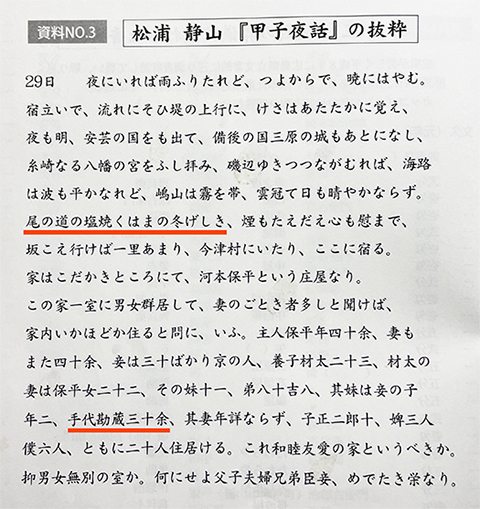 資料NO.3
松浦 静山 『甲子夜話』の抜粋
29日　　夜にいれば雨ふりたれど、つよからで、暁にはやむ。
宿立いで、流れにそひ堤の上行に、けさはあたたかに覚え、
夜も明、安芸の国をも出て、備後の国三原の城もあとになし、
糸崎なる八幡の宮をふし拝み、磯辺ゆきつつながむれば、海路
は波も平かなれど、嶋山は霧を帯、雲冠て日も晴やかならず。
尾の道の塩焼くはまの冬げしき、煙もたえだえ心も慰まで、
坂こえ行けば一里あまり、今津村にいたり、ここに宿る。
家はこだかきところにて、河本保平という庄屋なり。
この家一室に男女群居して、妻のごとき者多しと聞けば、
家内いかほどか住ると問に、いふ。主人保平年四十余、妻も
また四十余、妾は三十ばかり京の人、養子材太二十三、材太の
妻は保平女二十二、その妹十一、弟八十吉八、其妹は妾の子
年二、手代勘蔵三十余、其妻年詳ならず、子正二郎十、婢三人
僕六人、ともに二十人住居ける。これ和睦友愛の家というべきか。
抑男女無別の室か。何にせよ父子夫婦兄弟臣妾、めでたき栄なり。